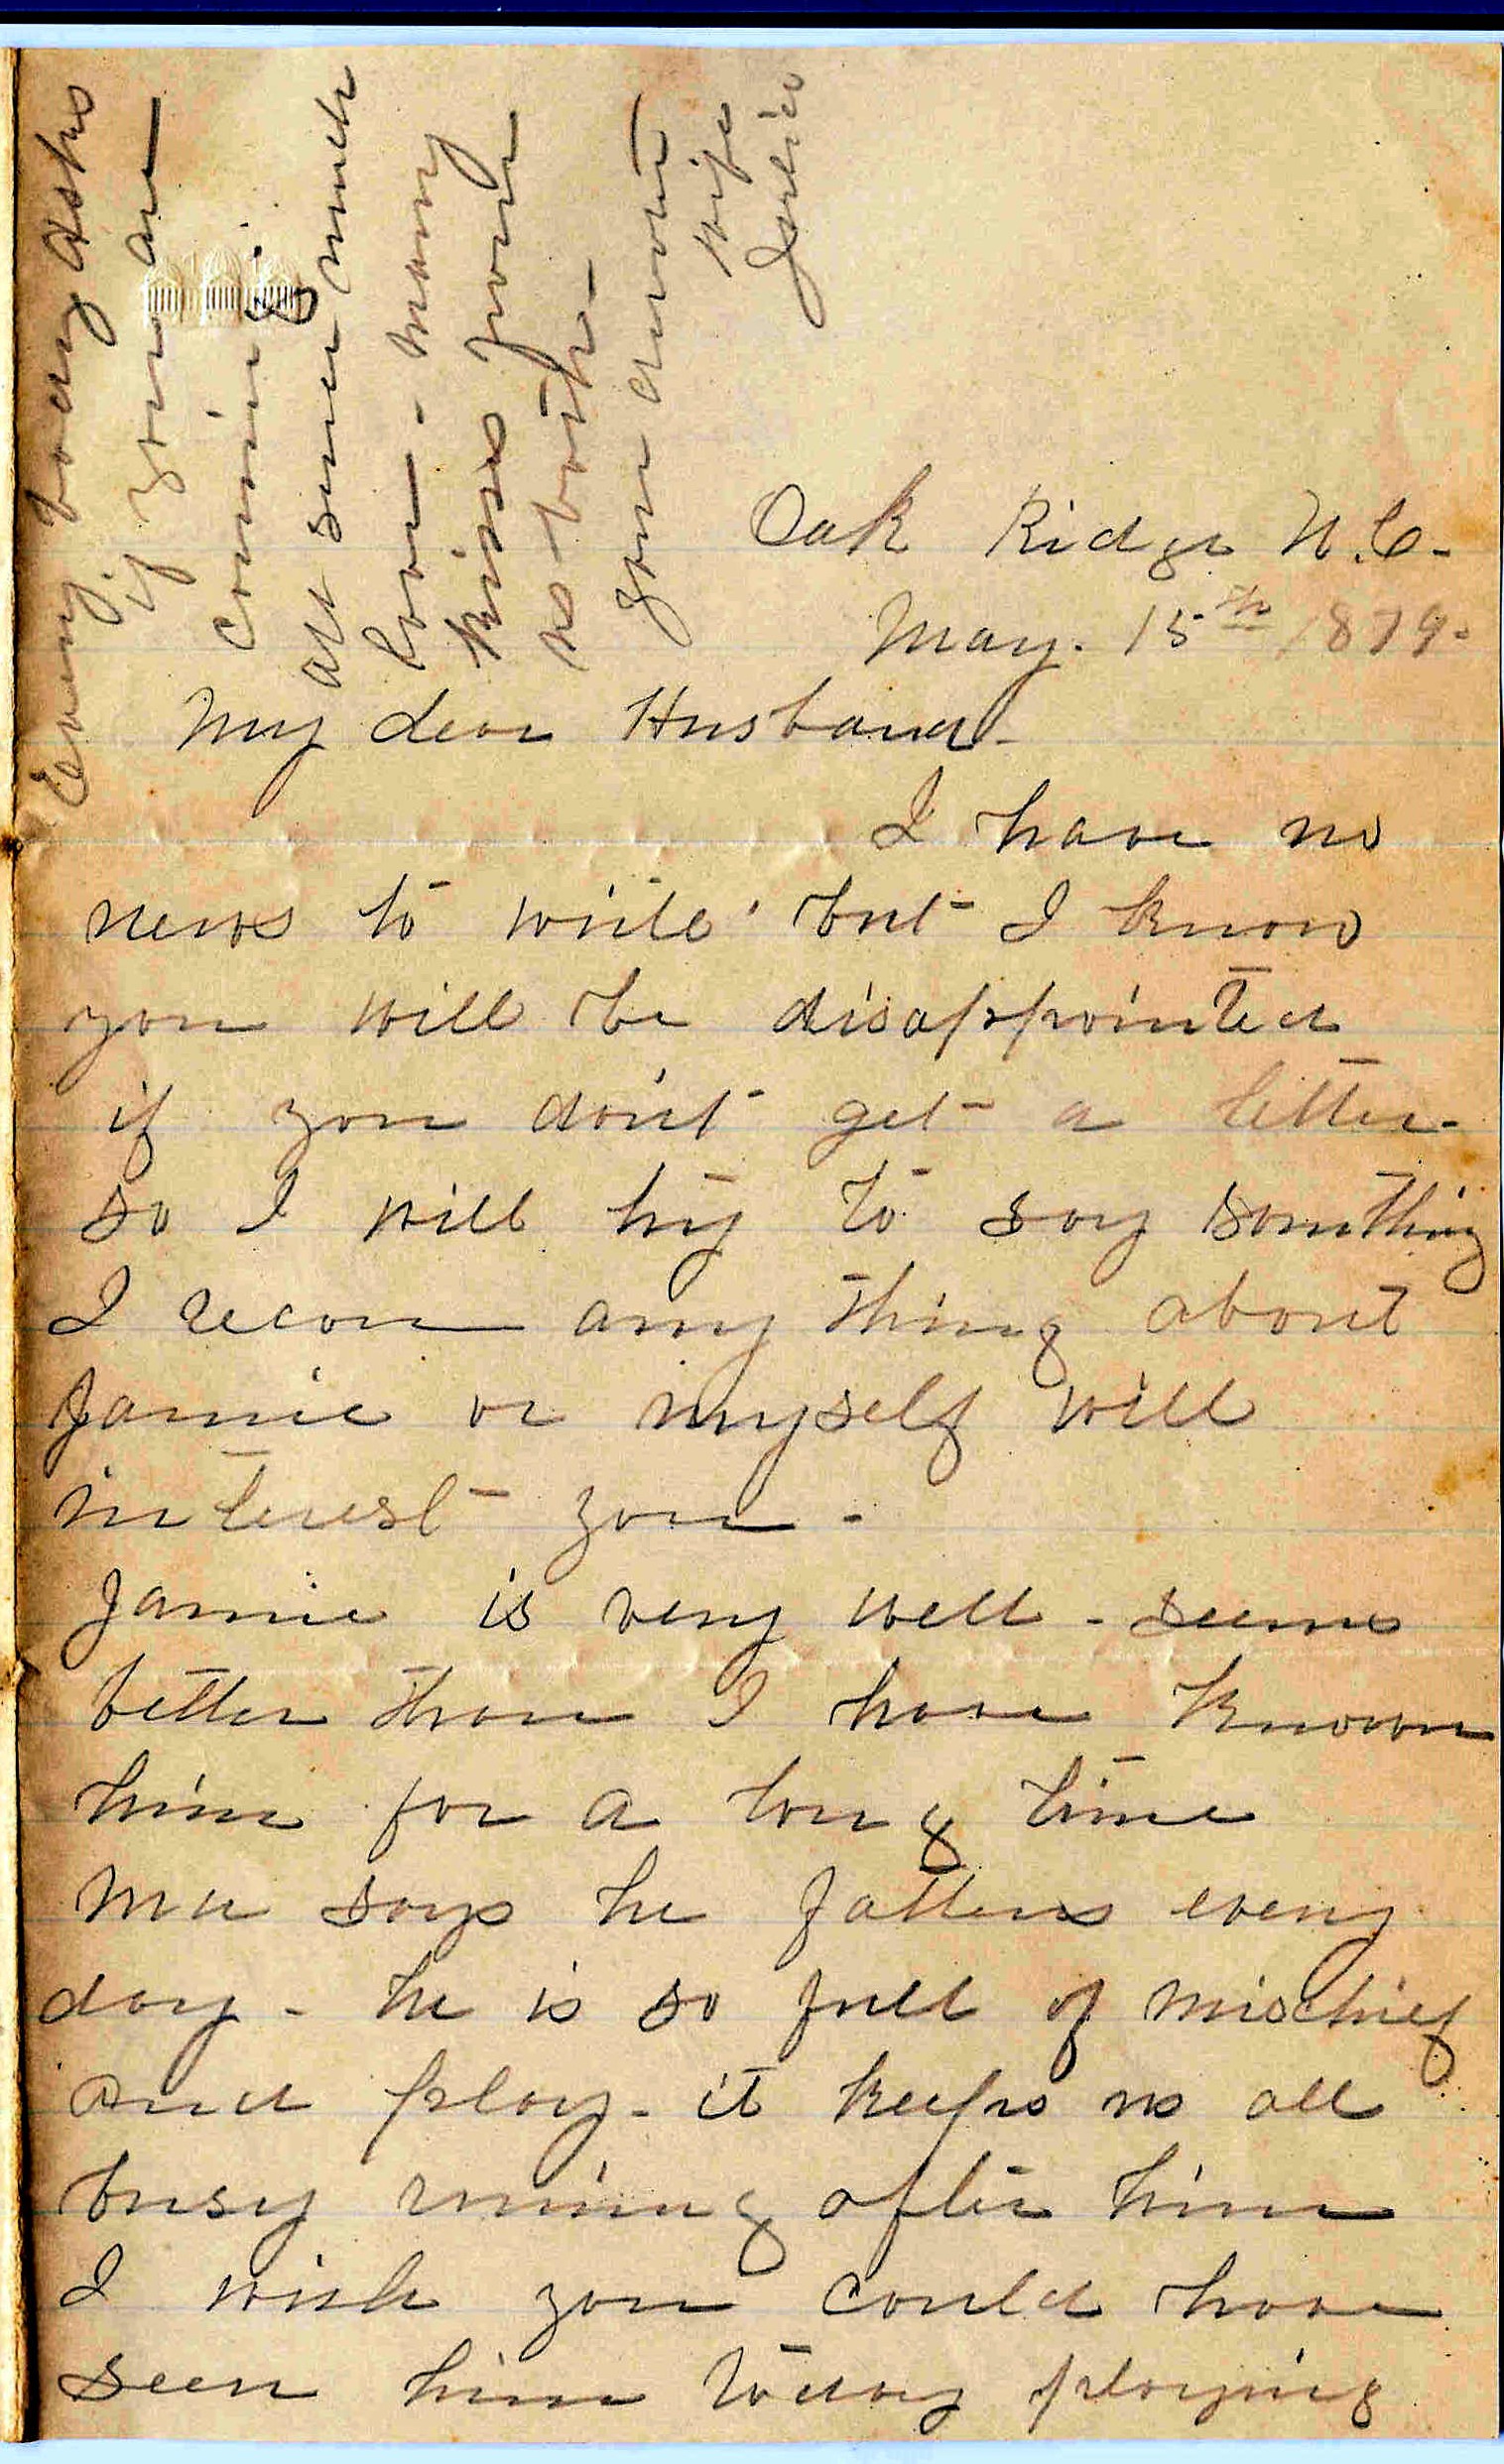 Oak Ridge N.C-
May. 15th 1879-
My dear Husband-
I have no
news to write but I know
you will be disappointed
if you don't get a letter-
so I will try to say somthing
I recon any thing about
Jamie or myself will
interest you-
Jamie is very well - seems
better than I have known
him for a long time
Ma says he fattens every
day - he is so full of mischief
and play - it keeps us all
busy runing after him
I wish you could have
seen him today playing
Every body asks
if you are
coming
all send much
love - Many
kisses from
us both-
your devoted
Wife